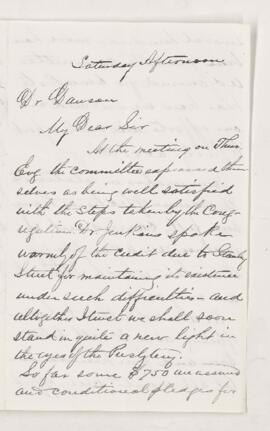 Saturday Afternoon
Dr. Dawson
My Dear Sir
At the meeting on Thurs.
Evg. the committee expressed them
selves as being well satisfied
with the steps taken by the Cong-
regation. Dr Jenkins spoke
warmly of the credit due to Stanley
Street for maintaining its existence
under such difficulties - and
altogether I trust we shall soon
stand in quite a new light in
the eyes of the Presbytery.
So far some $750 on assured
and conditional pledges for